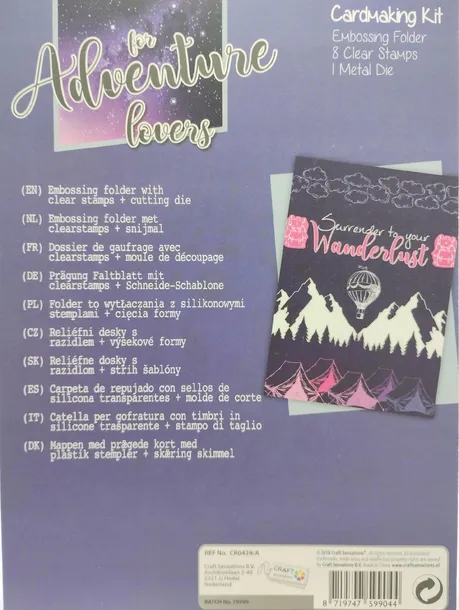 for
Adventure
lovers
Cardmaking Kit
Embossing Folder
8 Clear Stamps
1 Metal Die
(EN) Embossing folder with
clear stamps + cutting die
(NL) Embossing folder met
clearstamps + snijmal
(FR) Dossier de gaufrage avec
clearstamps + moule de découpage
(DE) Prägung Faltblatt mit
clearstamps + Schneide-Schablone
(PL) Folder to wytłaczania z silikonowymi
stemplami + cięcia formy
(CZ) Reliéfni desky s
razidlem + výsekové formy
(SK) Reliéfne dosky s
razidlom + strih šablóny
(ES) Carpeta de repujado con sellos de
silicona transparentes + molde de corte
(IT) Catella per gofratura con timbri in
silicone trasparente + stampo di taglio
(DK) Mappen med prægede kort med
plastik stempler + skæring skimmel
Surrender to your
Wanderlust
REF No. CR0439/A
Craft Sensations B.V.
5321 JJ Hedel
Nederland
BATCH No.
CRAFT
© 2018 Craft Sensations®. All rights reserved.
Craft Sensations B.V. Made in China. www.craftsensations.nl
8 719747 599044